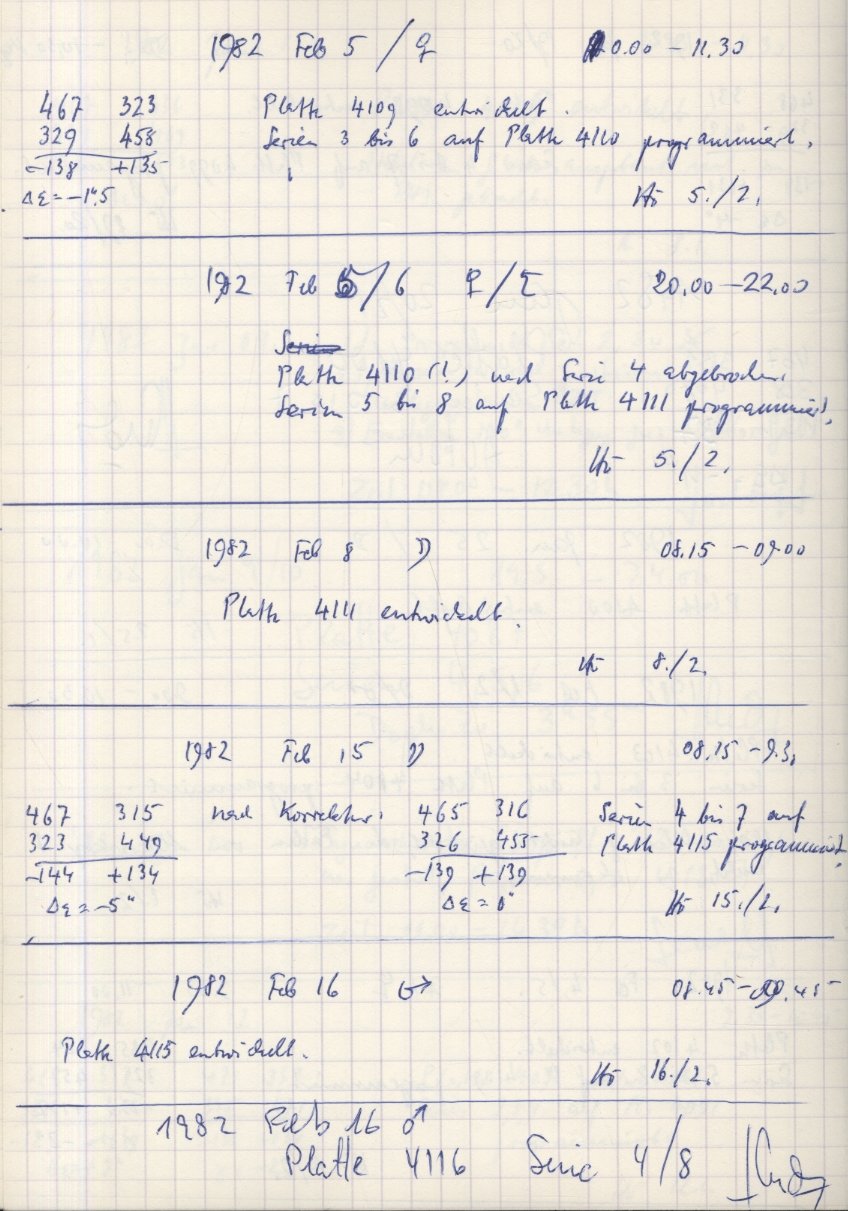 1982 Feb 5 / ♀ 10.00 – 11.30
467 323 Platte 4109 entwickelt.
329 458 Serien 3 bis 6 auf Platte 4110 programmiert.
–138 +135
Δε = –1".5 5./2.
1982 Feb 5/6 ♀/ 20.00 – 22.00
Serien
Platte 4110 (!) nach Serie 4 abgebrochen.
Serien 5 bis 8 auf Platte 4111 programmiert.
5./2.
1982 Feb 8 ☽ 08.15 – 09.00
Platte 4111 entwickelt.
8./2.
1982 Feb 15 ☽ 08.15 – 9.3
467 315 nach Korrektur: 465 316 Serien 4 bis 7 auf
323 449 326 455 Platte 4115 programmiert.
–144 +134 –139 +139
Δε = –5" Δε = 0" 15./2.
1982 Feb 16 ♂ 08.45 – 09.45
Platte 4115 entwickelt.
16./2.
1982 Feb 16 ♂
Platte 4116 Serie 4/8